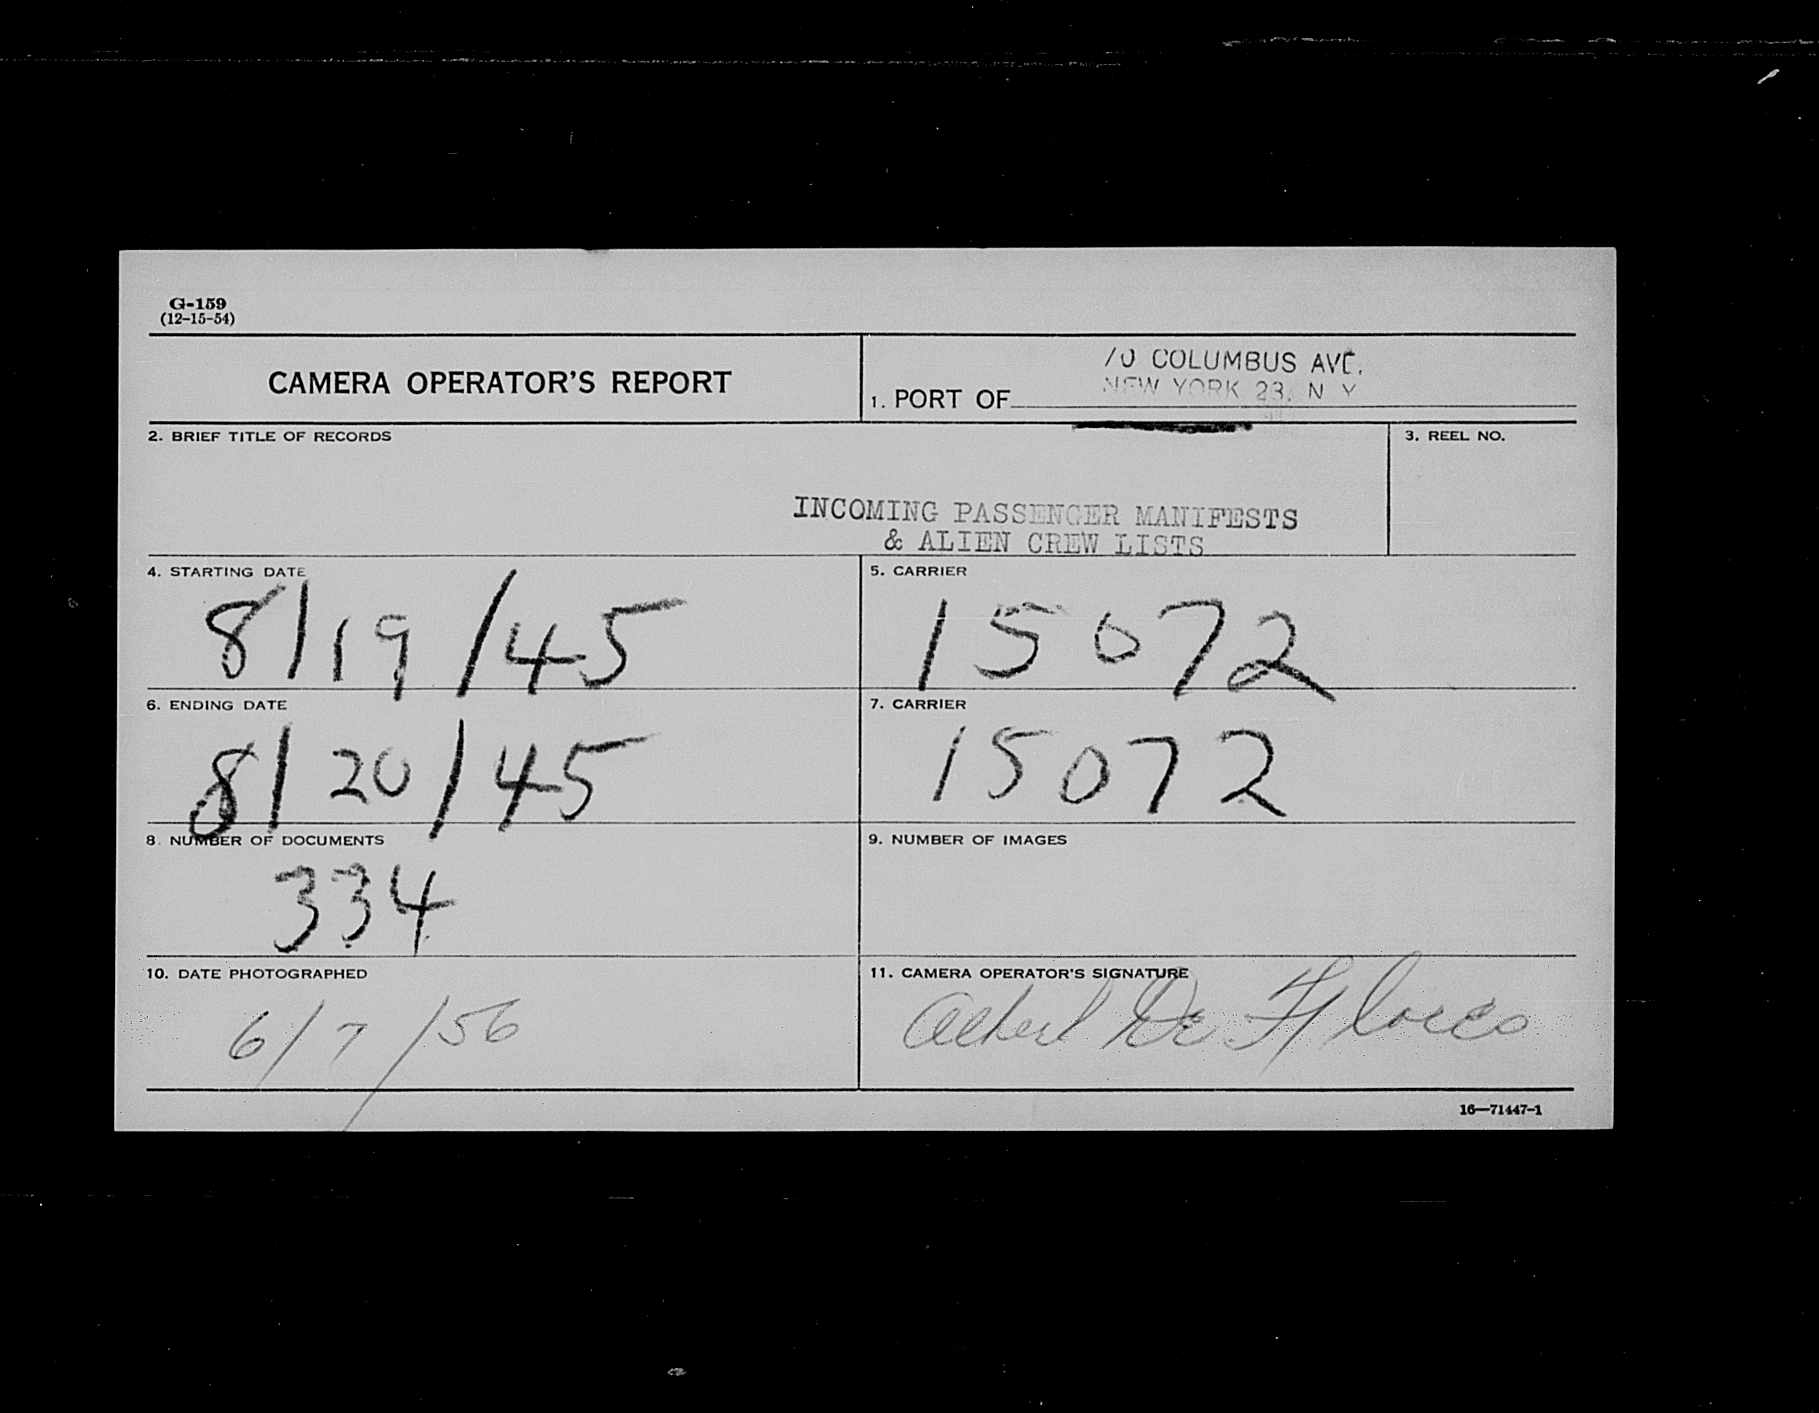 G-159
(12-15-54)
CAMERA OPERATOR'S REPORT
70 COLUMBUS AVE.
NEW YORK 23, N Y
1. PORT OF
2. BRIEF TITLE OF RECORDS
3. REEL NO.
INCOMING PASSENGER MANIFESTS
& ALIEN CREW LISTS
4. STARTING DATE
8/19/45
5. CARRIER
15072
6. ENDING DATE
8/20/45
7. CARRIER
15072
8. NUMBER OF DOCUMENTS
334
9. NUMBER OF IMAGES
10. DATE PHOTOGRAPHED
6/7/56
11. CAMERA OPERATOR'S SIGNATURE
Albert De
16—71447-1